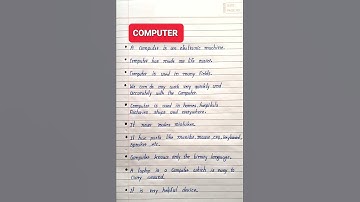 COMPUTER
A Computer is an electronic machine.
Computer has made our life easier.
Computer is used in many fields.
We can do any work very quickly and
accurately with the Computer.
Computer is used in homes, hospitals
factories, shops and everywhere.
It never makes mistakes.
It has parts like monitor, mouse, cpu, keyboard,
speaker etc.
Computer knows only the binary language.
A laptop is a Computer which is easy to
carry around.
It is very helpful device.